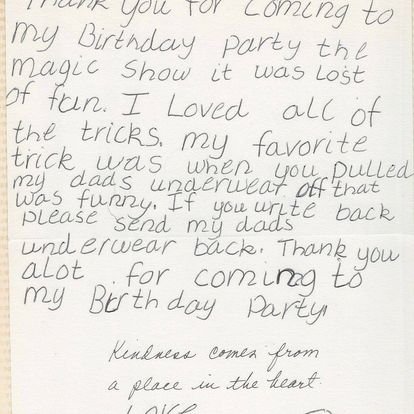 Thank you for coming to
my Birthday party the
magic show it was lost
of fun. I Loved all of
the tricks. my favorite
trick was when you pulled
my dads underwear off that
was funny. If you write back
please send my dads
underwear back. Thank you
alot for coming to
my Birthday Party!
Kindness comes from
a place in the heart.
Love